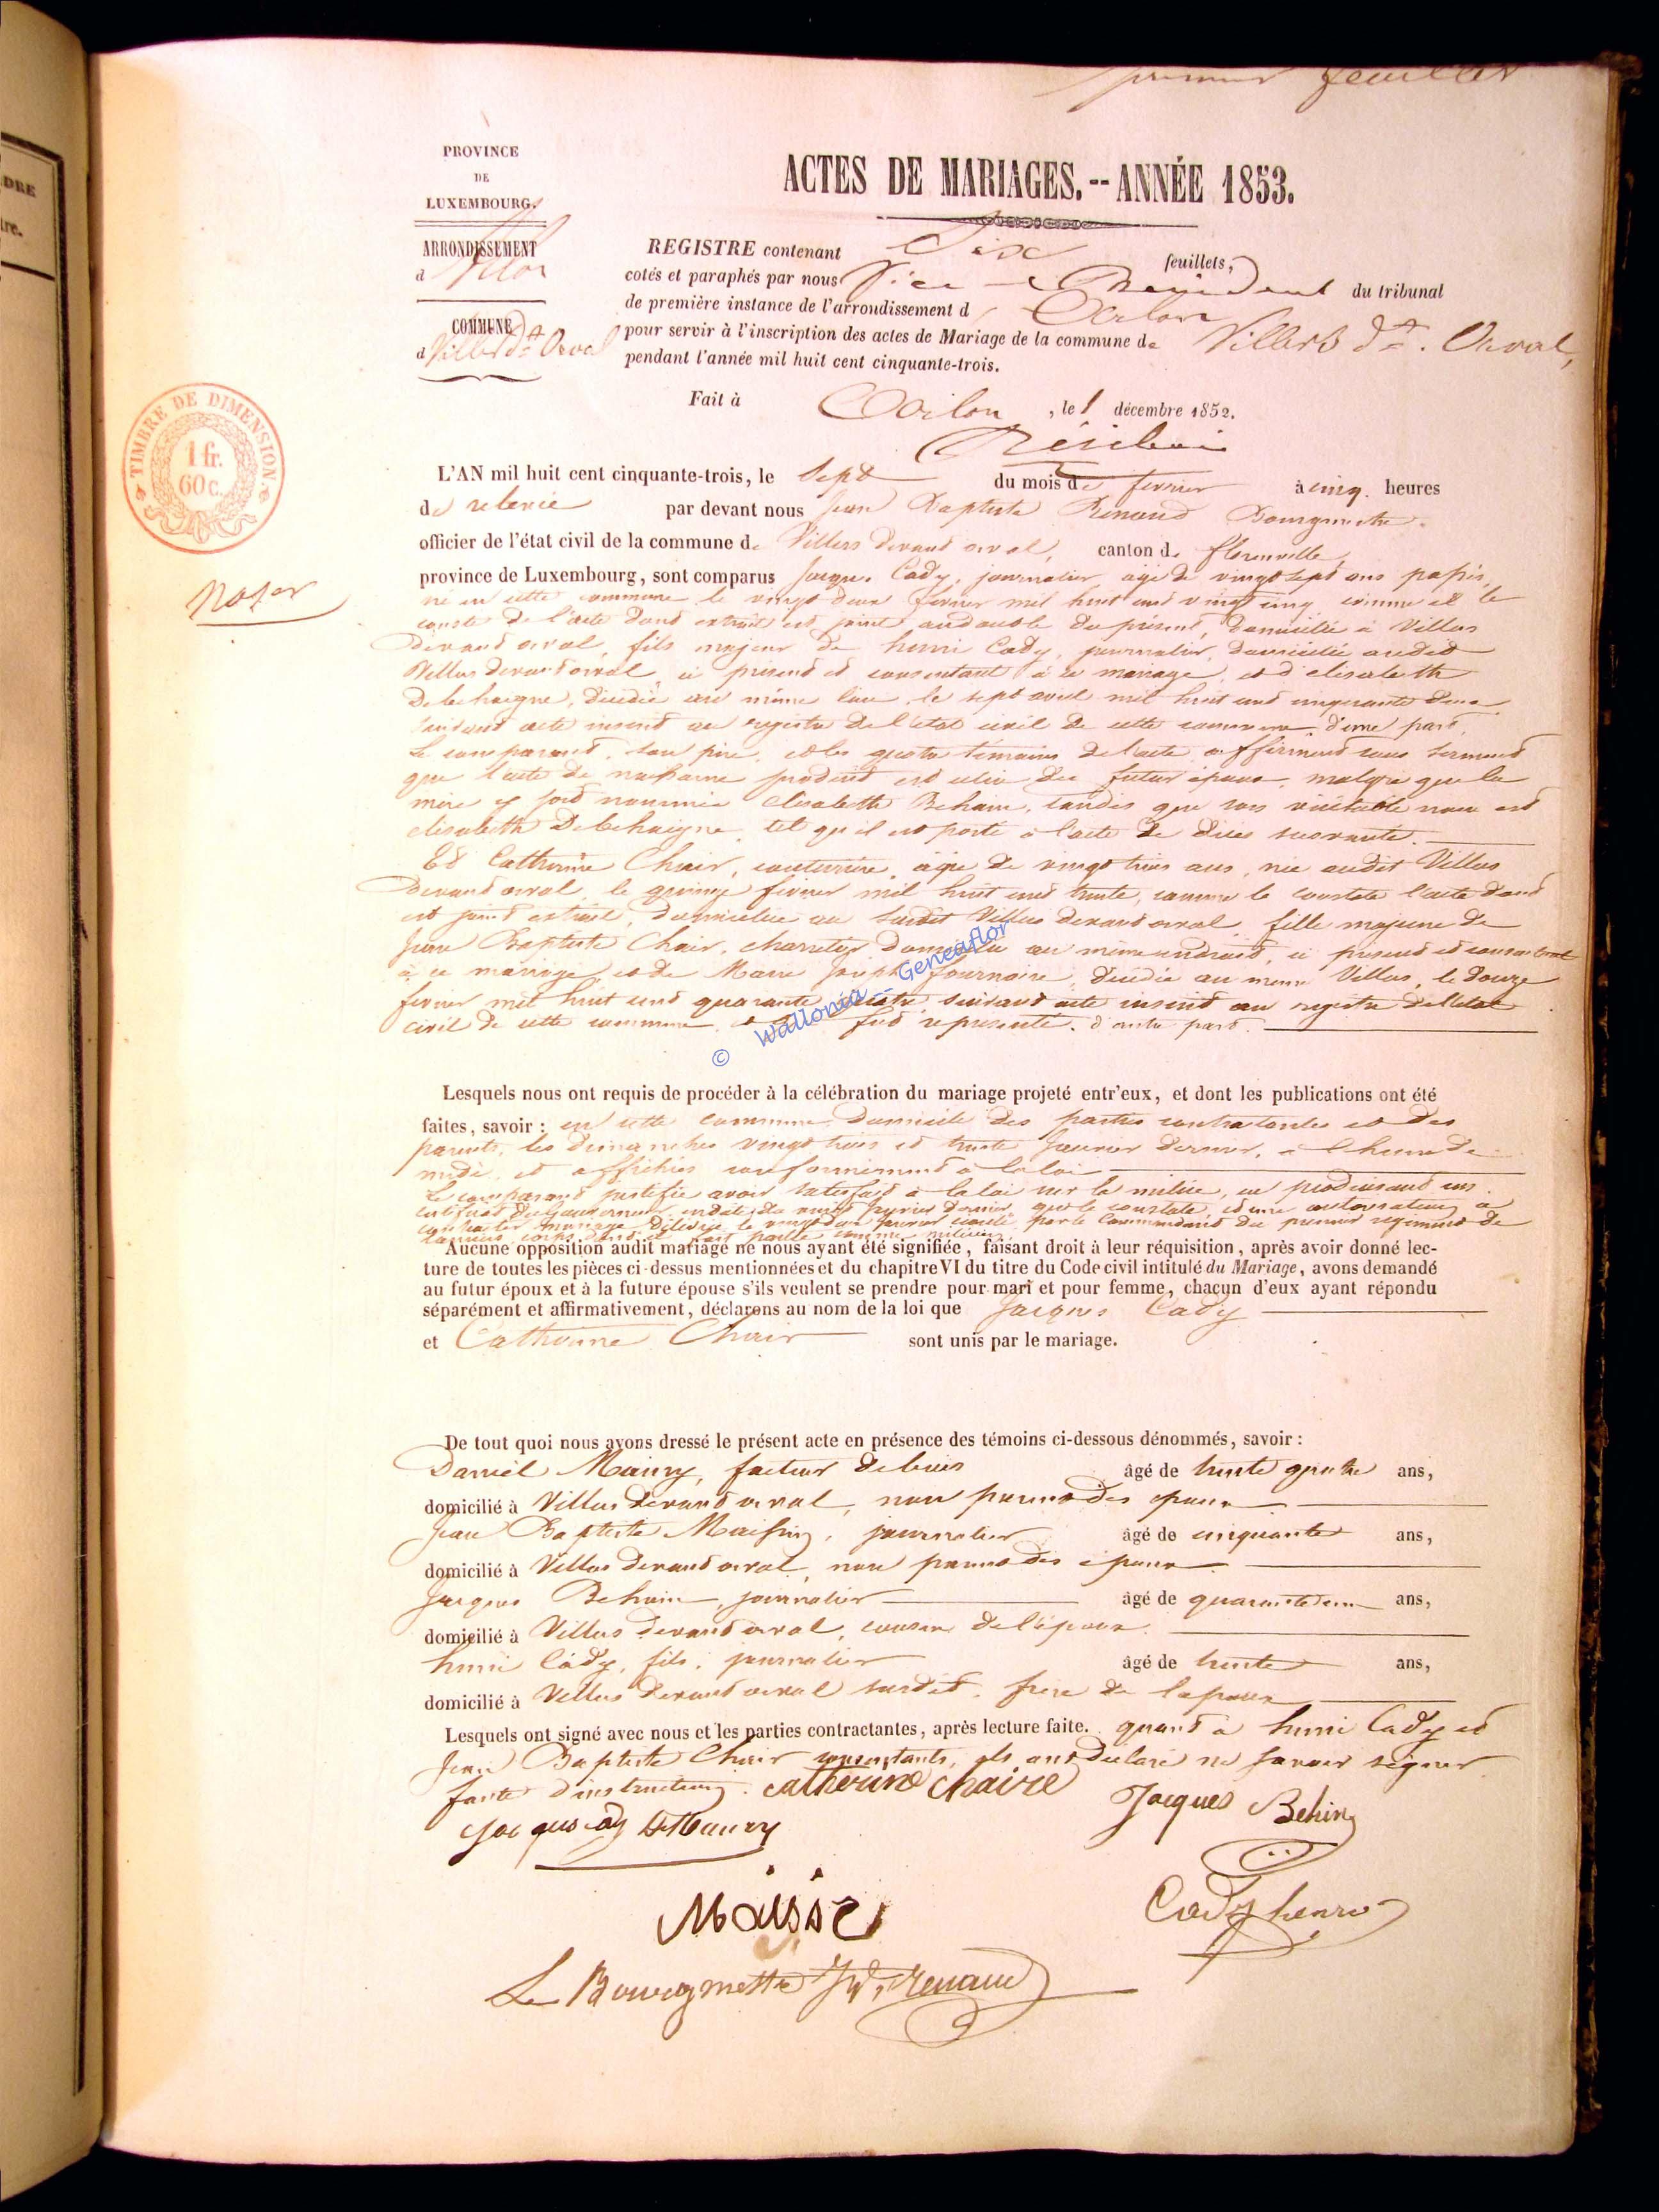 DRE
ire.
premier feuillet
PROVINCE
DE
LUXEMBOURG.
ARRONDISSEMENT
d'Arlon
COMMUNE
d Villers dt Orval
TIMBRE DE DIMENSION.
1 fr.
60 c.
ACTES DE MARIAGES. -- ANNÉE 1853.
REGISTRE contenant Six feuillets,
cotés et paraphés par nous Vice Président du tribunal
de première instance de l'arrondissement d Arlon
pour servir à l'inscription des actes de Mariage de la commune de Villers dt. Orval,
pendant l'année mil huit cent cinquante-trois.
Fait à Arlon, le 1 décembre 1852.
L'AN mil huit cent cinquante-trois, le sept du mois de fevrier à cinq heures
de relevée par devant nous Jean Baptiste Renaud Bourgmestre
officier de l'état civil de la commune de Villers devant orval, canton de florenville,
province de Luxembourg, sont comparus Jacques Cady, journalier, agé de vingt sept ans passés,
né en cette commune le vingt deux fevrier mil huit cent vingt cinq comme il le
conste de l'acte dont extrait est joint au double du présent, domicilié à Villers
devant orval, fils majeur de henri Cady, journalier, domicilié audit
Villers devant orval, ci présent et consentant à ce mariage, et d'elisabeth
Debehaigne, décédée au même lieu, le sept avril mil huit cent cinquante deux
suivant acte inscrit au registre de l'état civil de cette commune, d'une part.
Le comparant, son père, et les quatre témoins de l'acte affirment sous serment
que l'acte de naissance produit est celui du futur époux, malgré que la
mère y soit nommée elisabeth Behain, tandis que son véritable nom est
elisabeth Debehaigne, tel qu'il est porté à l'acte de décès susvanté.
Et Catherine Chair, couturière, agée de vingt trois ans, née audit Villers
devant orval, le quinze fevrier mil huit cent trente, comme le constate l'acte dont
est joint extrait, domiciliée au susdit Villers devant orval, fille majeure de
Jean Baptiste Chair, charretier domicilié au même endroit, ci present et consentant
à ce mariage, et de Marie Joseph fournaire, décédée au meme Villers, le douze
fevrier mil huit cent quarante quatre suivant acte inscrit au registre de l'état
civil de cette commune fut représenté, d'autre part.
© Wallonia - Geneaflor
Lesquels nous ont requis de procéder à la célébration du mariage projeté entr'eux, et dont les publications ont été
faites, savoir : en cette commune domicile des parties contractantes et des
parents, les dimanches vingt trois et trente Janvier dernier, à l'heure de
midi, et affichées conformément à la loi
Le comparant justifie avoir satisfait à la loi sur la milice, en produisant un
certificat du Gouverneur en date du Janvier dernier, qui le constate, et une autorisation à
contracter mariage délivrée le par le Commandant du premier regiment de
Lanciers corps dont il fait partie comme milicien.
Aucune opposition audit mariage ne nous ayant été signifiée, faisant droit à leur réquisition, après avoir donné lec-
ture de toutes les pièces ci-dessus mentionnées et du chapitre VI du titre du Code civil intitulé du Mariage, avons demandé
au futur époux et à la future épouse s'ils veulent se prendre pour mari et pour femme, chacun d'eux ayant répondu
séparément et affirmativement, déclarons au nom de la loi que Jacques Cady
et Catherine Chair sont unis par le mariage.
De tout quoi nous avons dressé le présent acte en présence des témoins ci-dessous dénommés, savoir :
Daniel Maury, facteur de bois âgé de trente quatre ans,
domicilié à Villers devant orval, non parent des époux
Jean Baptiste Maissin, journalier âgé de cinquante ans,
domicilié à Villers devant orval, non parent des époux
Jacques Behain, journalier âgé de quarante deux ans,
domicilié à Villers devant orval, cousin de l'époux.
henri Cady, fils, journalier âgé de trente ans,
domicilié à Villers devant orval susdit, frère de l'époux
Lesquels ont signé avec nous et les parties contractantes, après lecture faite. quant à henri Cady et
Jean Baptiste Chair consentants, ils ont déclaré ne savoir signer
faute d'instruction. Catherine chaire
Jacques Behin
Jacques cady D Maury
Cady henri
Le Bourgmestre JB. Renaud